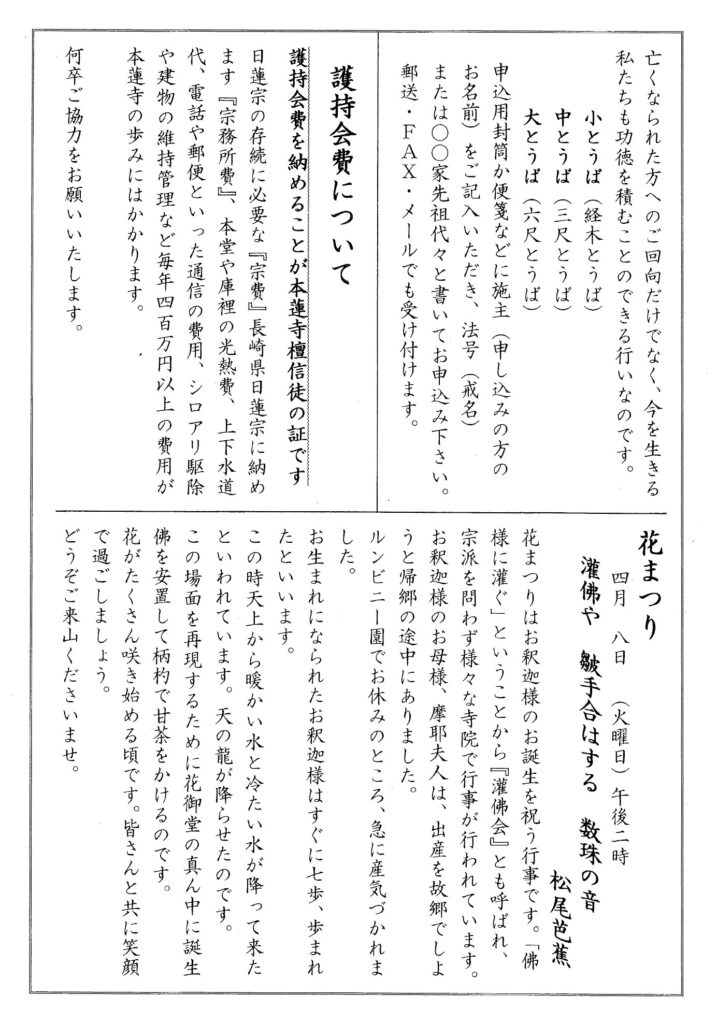 亡くなられた方へのご回向だけでなく、今を生きる
私たちも功徳を積むことのできる行いなのです。
小とうば（経木とうば）
中とうば（三尺とうば）
大とうば（六尺とうば）
申込用封筒か便箋などに施主（申し込みの方の
お名前）をご記入いただき、法号（戒名）
または〇〇家先祖代々と書いてお申込み下さい。
郵送・ＦＡＸ・メールでも受け付けます。
護持会費について
護持会費を納めることが本蓮寺檀信徒の証です
日蓮宗の存続に必要な『宗費』長崎県日蓮宗に納め
ます『宗務所費』、本堂や庫裡の光熱費、上下水道
代、電話や郵便といった通信の費用、シロアリ駆除
や建物の維持管理など毎年四百万円以上の費用が
本蓮寺の歩みにはかかります。
何卒ご協力をお願いいたします。
花まつり
四月 八日 （火曜日）午後二時
灌佛や 皺手合はする 数珠の音
松尾芭蕉
花まつりはお釈迦様のお誕生を祝う行事です。「佛
様に灌ぐ」ということから『灌佛会』とも呼ばれ、
宗派を問わず様々な寺院で行事が行われています。
お釈迦様のお母様、摩耶夫人は、出産を故郷でしよ
うと帰郷の途中にありました。
ルンビニー園でお休みのところ、急に産気づかれま
した。
お生まれになられたお釈迦様はすぐに七歩、歩まれ
たといいます。
この時天上から暖かい水と冷たい水が降って来た
といわれています。天の龍が降らせたのです。
この場面を再現するために花御堂の真ん中に誕生
佛を安置して柄杓で甘茶をかけるのです。
花がたくさん咲き始める頃です。皆さんと共に笑顔
で過ごしましょう。
どうぞご来山くださいませ。